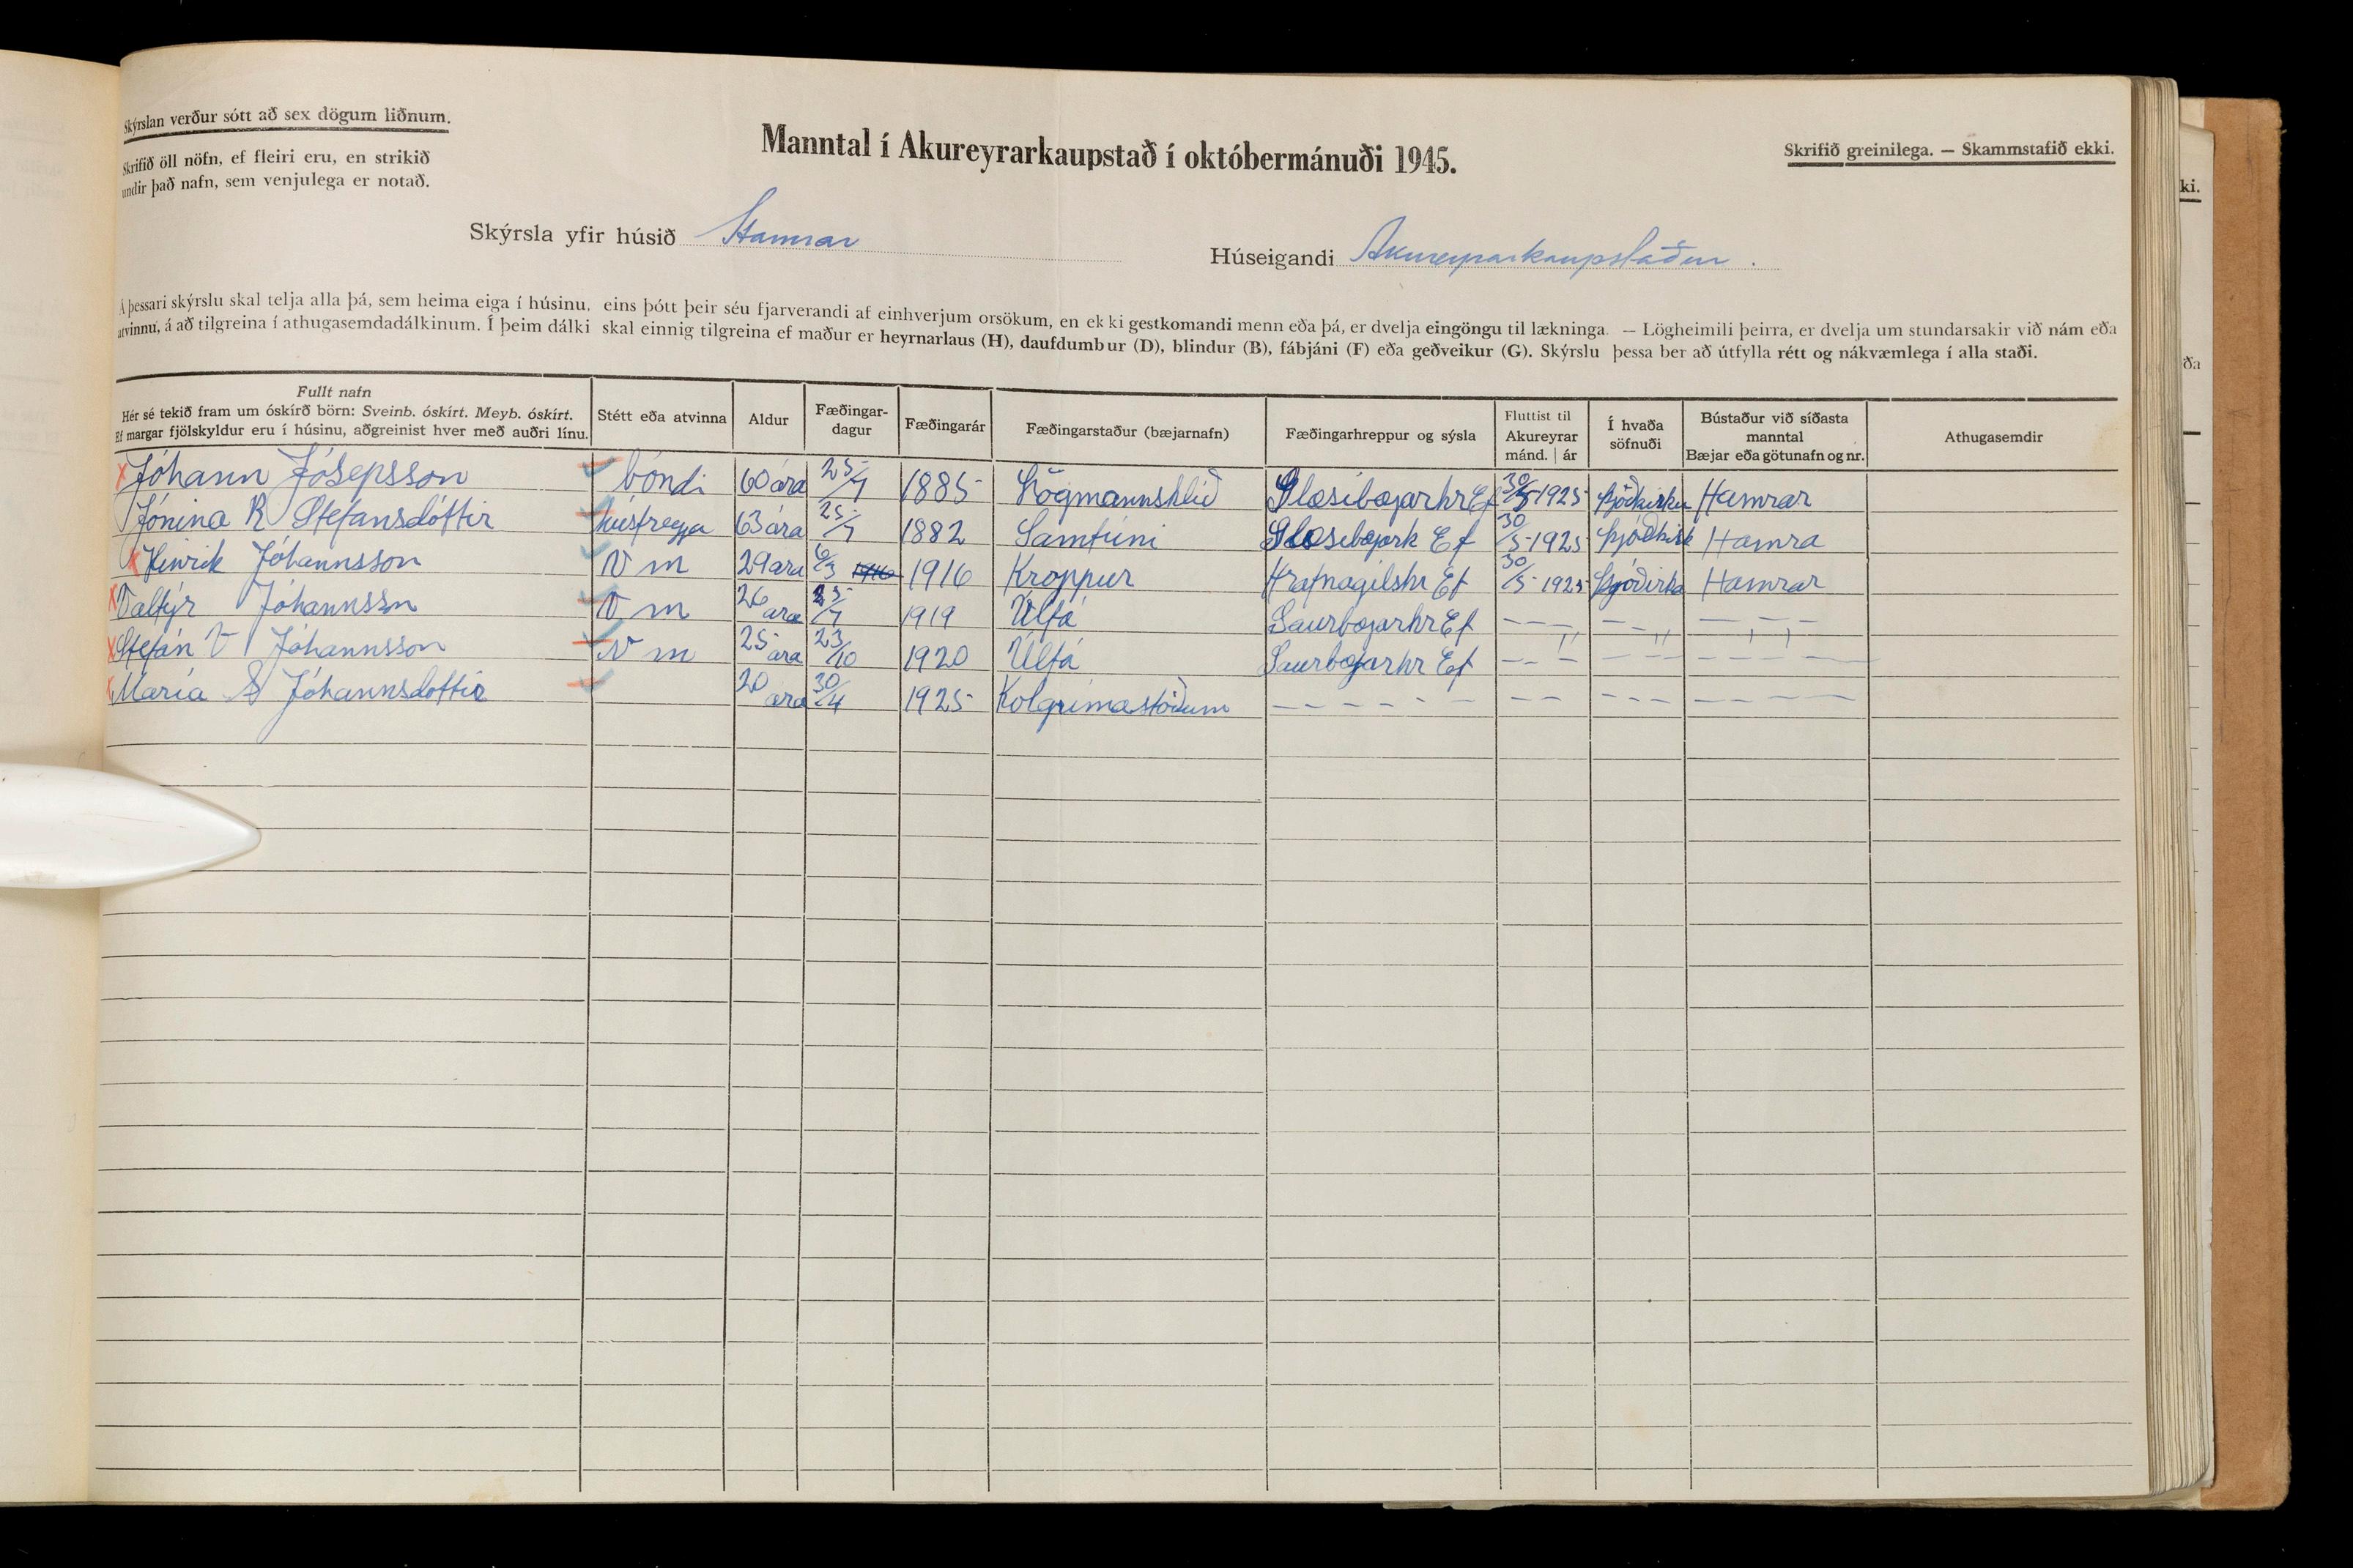 Skýrslan verður sótt að sex dögum liðnum.
Skrifið öll nöfn, ef fleiri eru, en strikið
undir það nafn, sem venjulega er notað.
Manntal í Akureyrarkaupstað í októbermánuði 1945.
Skrifið greinilega. — Skammstafið ekki.
Skýrsla yfir húsið Hamrar
Húseigandi Akureyrarkaupstaður.
Á þessari skýrslu skal telja alla þá, sem heima eiga í húsinu, eins þótt þeir séu fjarverandi af einhverjum orsökum, en ekki gestkomandi menn eða þá, er dvelja eingöngu til lækninga. — Lögheimili þeirra, er dvelja um stundarsakir við nám eða
atvinnu, á að tilgreina í athugasemdadálkinum. Í þeim dálki skal einnig tilgreina ef maður er heyrnarlaus (H), daufdumbur (D), blindur (B), fábjáni (F) eða geðveikur (G). Skýrslu þessa ber að útfylla rétt og nákvæmlega í alla staði.
Fullt nafn
Hér sé tekið fram um óskírð börn: Sveinb. óskírt. Meyb. óskírt.
Ef margar fjölskyldur eru í húsinu, aðgreinist hver með auðri línu.
Stétt eða atvinna
Aldur
Fæðingar-
dagur
Fæðingarár
Fæðingarstaður (bæjarnafn)
Fæðingarhreppur og sýsla
Fluttist til
Akureyrar
mánd. | ár
Í hvaða
söfnuði
Bústaður við síðasta
manntal
Bæjar eða götunafn og nr.
Athugasemdir
Jóhann Jósepsson bóndi 60 ára 25/7 1885 Lögmannshlíð Glæsibæjarhr Ef 30/5 1925 Þjóðkirkju Hamrar
Jónína R Stefánsdóttir húsfreyja 63 ára 25/7 1882 Samtúni Glæsibæjark Ef 30/5 1925 Þjóðkirk Hamra
Hinrik Jóhannsson V m 29 ara 6/3 1916 1916 Kroppur Hrafnagilshr Ef 30/5 1925 Þjóðirka Hamrar
Valtýr Jóhannssn V m 26 ara 25/7 1919 Úlfá Saurbæjarhr Ef — — „ — — „ — — „
Stefán V Jóhannsson V m 25 ara 23/10 1920 Úlfá Saurbæjarhr Ef — — — — — — — — —
María S Jóhannsdóttir 20 ara 30/4 1925 Kolgrimastöðum — — — — — — — — — — — —
ki.
ða